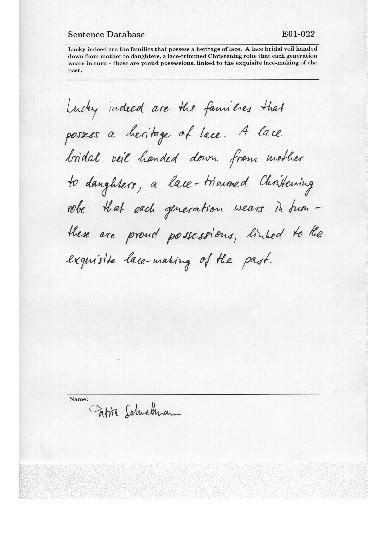 Sentence Database E01-022
Lucky indeed are the families that possess a heritage of lace. A lace bridal veil handed
down from mother to daughters, a lace-trimmed Christening robe that each generation
wears in turn - these are proud possessions, linked to the exquisite lace-making of the
past.
Lucky indeed are the families that
possess a heritage of lace. A lace
bridal veil handed down from mother
to daughters, a lace-trimmed Christening
robe that each generation wears in turn -
these are proud possessions, linked to the
exquisite lace-making of the past.
Name: